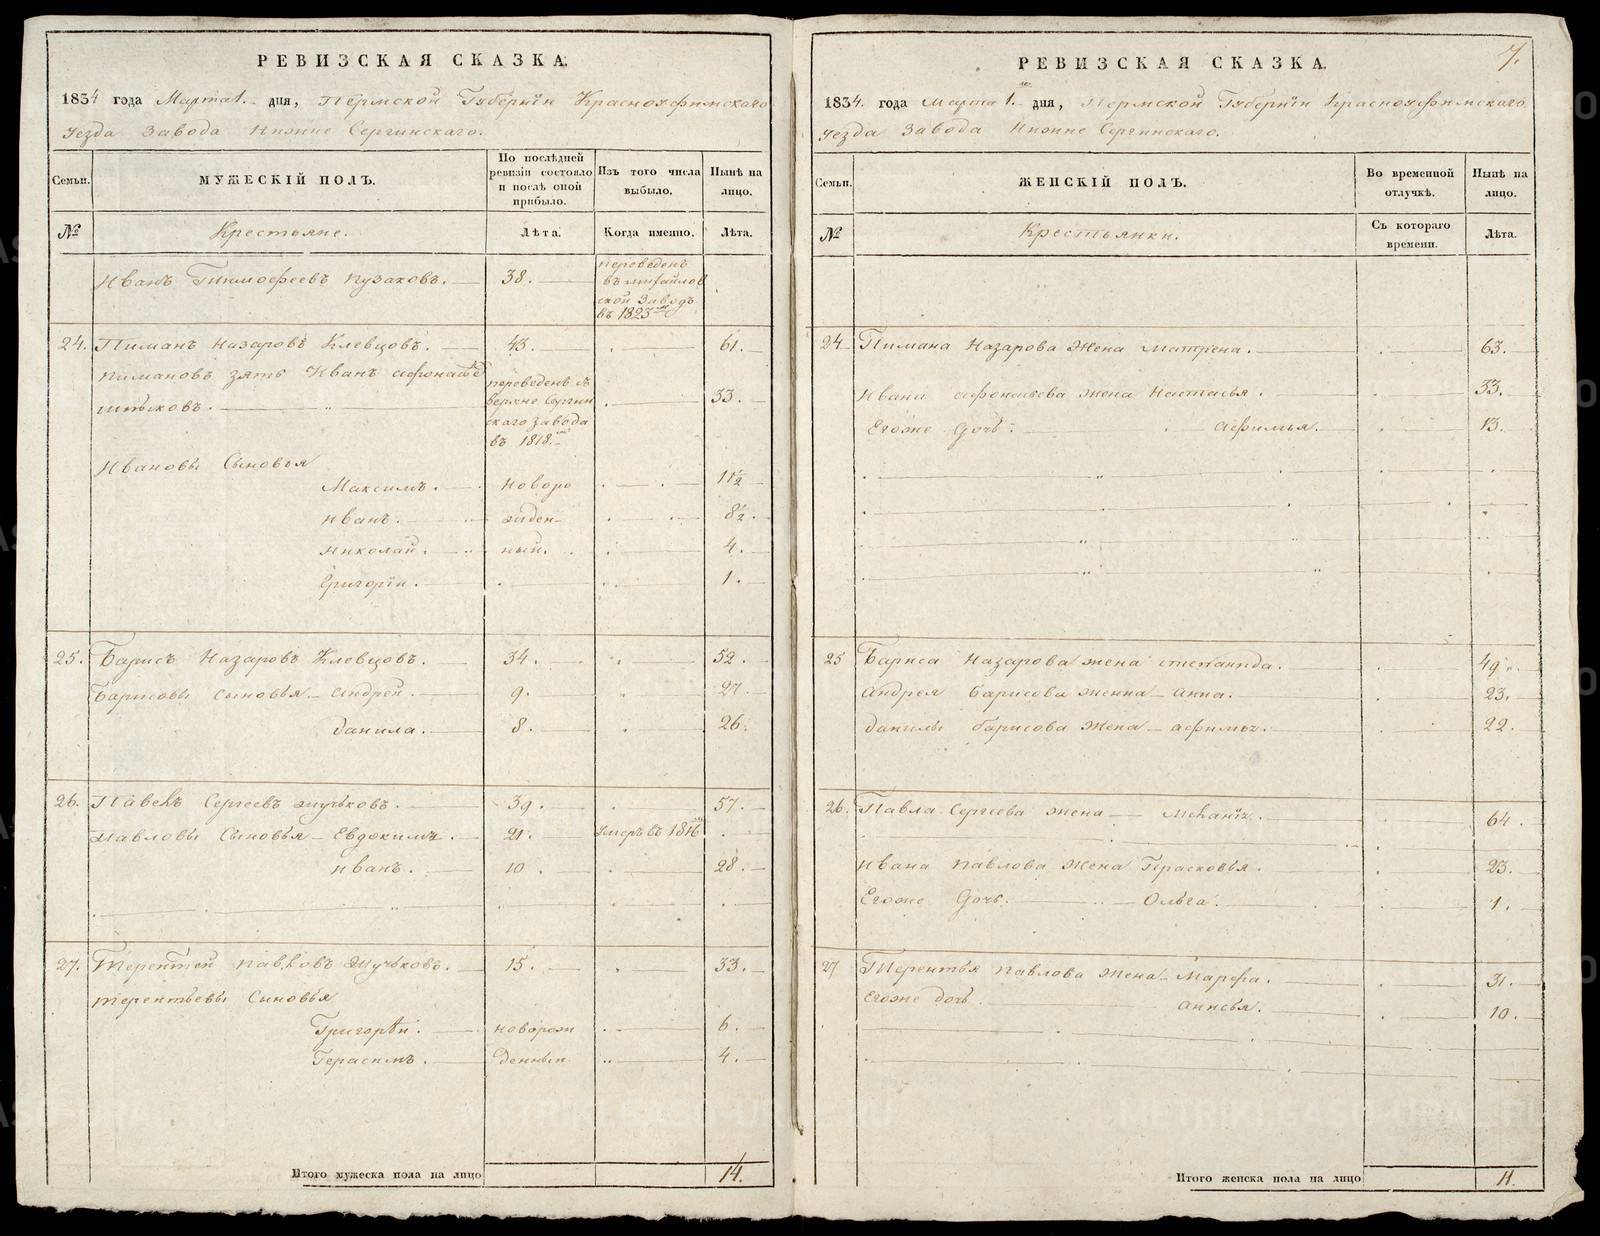 РЕВИЗСКАЯ СКАЗКА.
1834 года Марта 1. дня, Пермской Губернїи Красноуфимскаго
уезда Завода Нижне Сергинскаго.
Семьи.
МУЖЕСКІЙ ПОЛЪ.
По послѣдней ревизіи состояло и послѣ оной прибыло.
Изъ того числа выбыло.
Нынѣ на лицо.
№
Крестьяне.
Лѣта.
Когда именно.
Лѣта.
Иванъ Тимофеевъ Пузаковъ.
38.
переведенъ
въ михайлов
ской Заводъ
въ 1823м
24. Пиманъ Назаровъ Клевцовъ. 43. 61.
Пимановъ зять Иванъ Афонасьевъ
переведенъ съ
верхне Сергин
скаго завода
въ 1818.
33.
Ивановы Сыновья
Максимъ. новоро 11½
Иванъ. жден- 8½.
Николай. ный. 4.
Григорїи. 1.
25. Барисъ Назаровъ Клевцовъ. 34. 52.
Барисовы сыновья Андрей. 9. 27.
данила. 8. 26.
26. Павелъ Сергеевъ жучковъ. 39. 57.
Павловы Сыновья Евдокимъ. 21. умеръ въ 1816
иванъ. 10. 28.
27. Терентей Павловъ Жучковъ. 15. 33.
терентьевы Сыновья
Григорѣй. новорож 6.
Герасимъ. денныи 4.
Итого мужеска пола на лицо 14.
7.
РЕВИЗСКАЯ СКАЗКА.
1834. года Марта 1. дня, Пермской Губернїи Красноуфимскаго
уезда Завода Нижне Сергинскаго.
Семьи.
ЖЕНСКІЙ ПОЛЪ.
Во временной отлучкѣ.
Нынѣ на лицо.
№
Крестьянки.
Съ котораго времени.
Лѣта.
24 Пимана Назарова Жена матрена. 63.
Ивана афонасьева жена Настасья. 33.
Егоже Дочь: Афимья. 13.
25 Бариса Назарова жена степанида. 49.
Андрея Барисова женна Анна. 23.
данилы барисова Жена афимья. 22.
26. Павла Сергѣева жена Меланїя. 64.
Ивана Павлова Жена Прасковья. 23.
Егоже Дочь. Ольга. 1.
27 Терентья Павлова Жена Марфа. 31.
Егоже дочь Анисья. 10.
Итого женска пола на лицо 11.